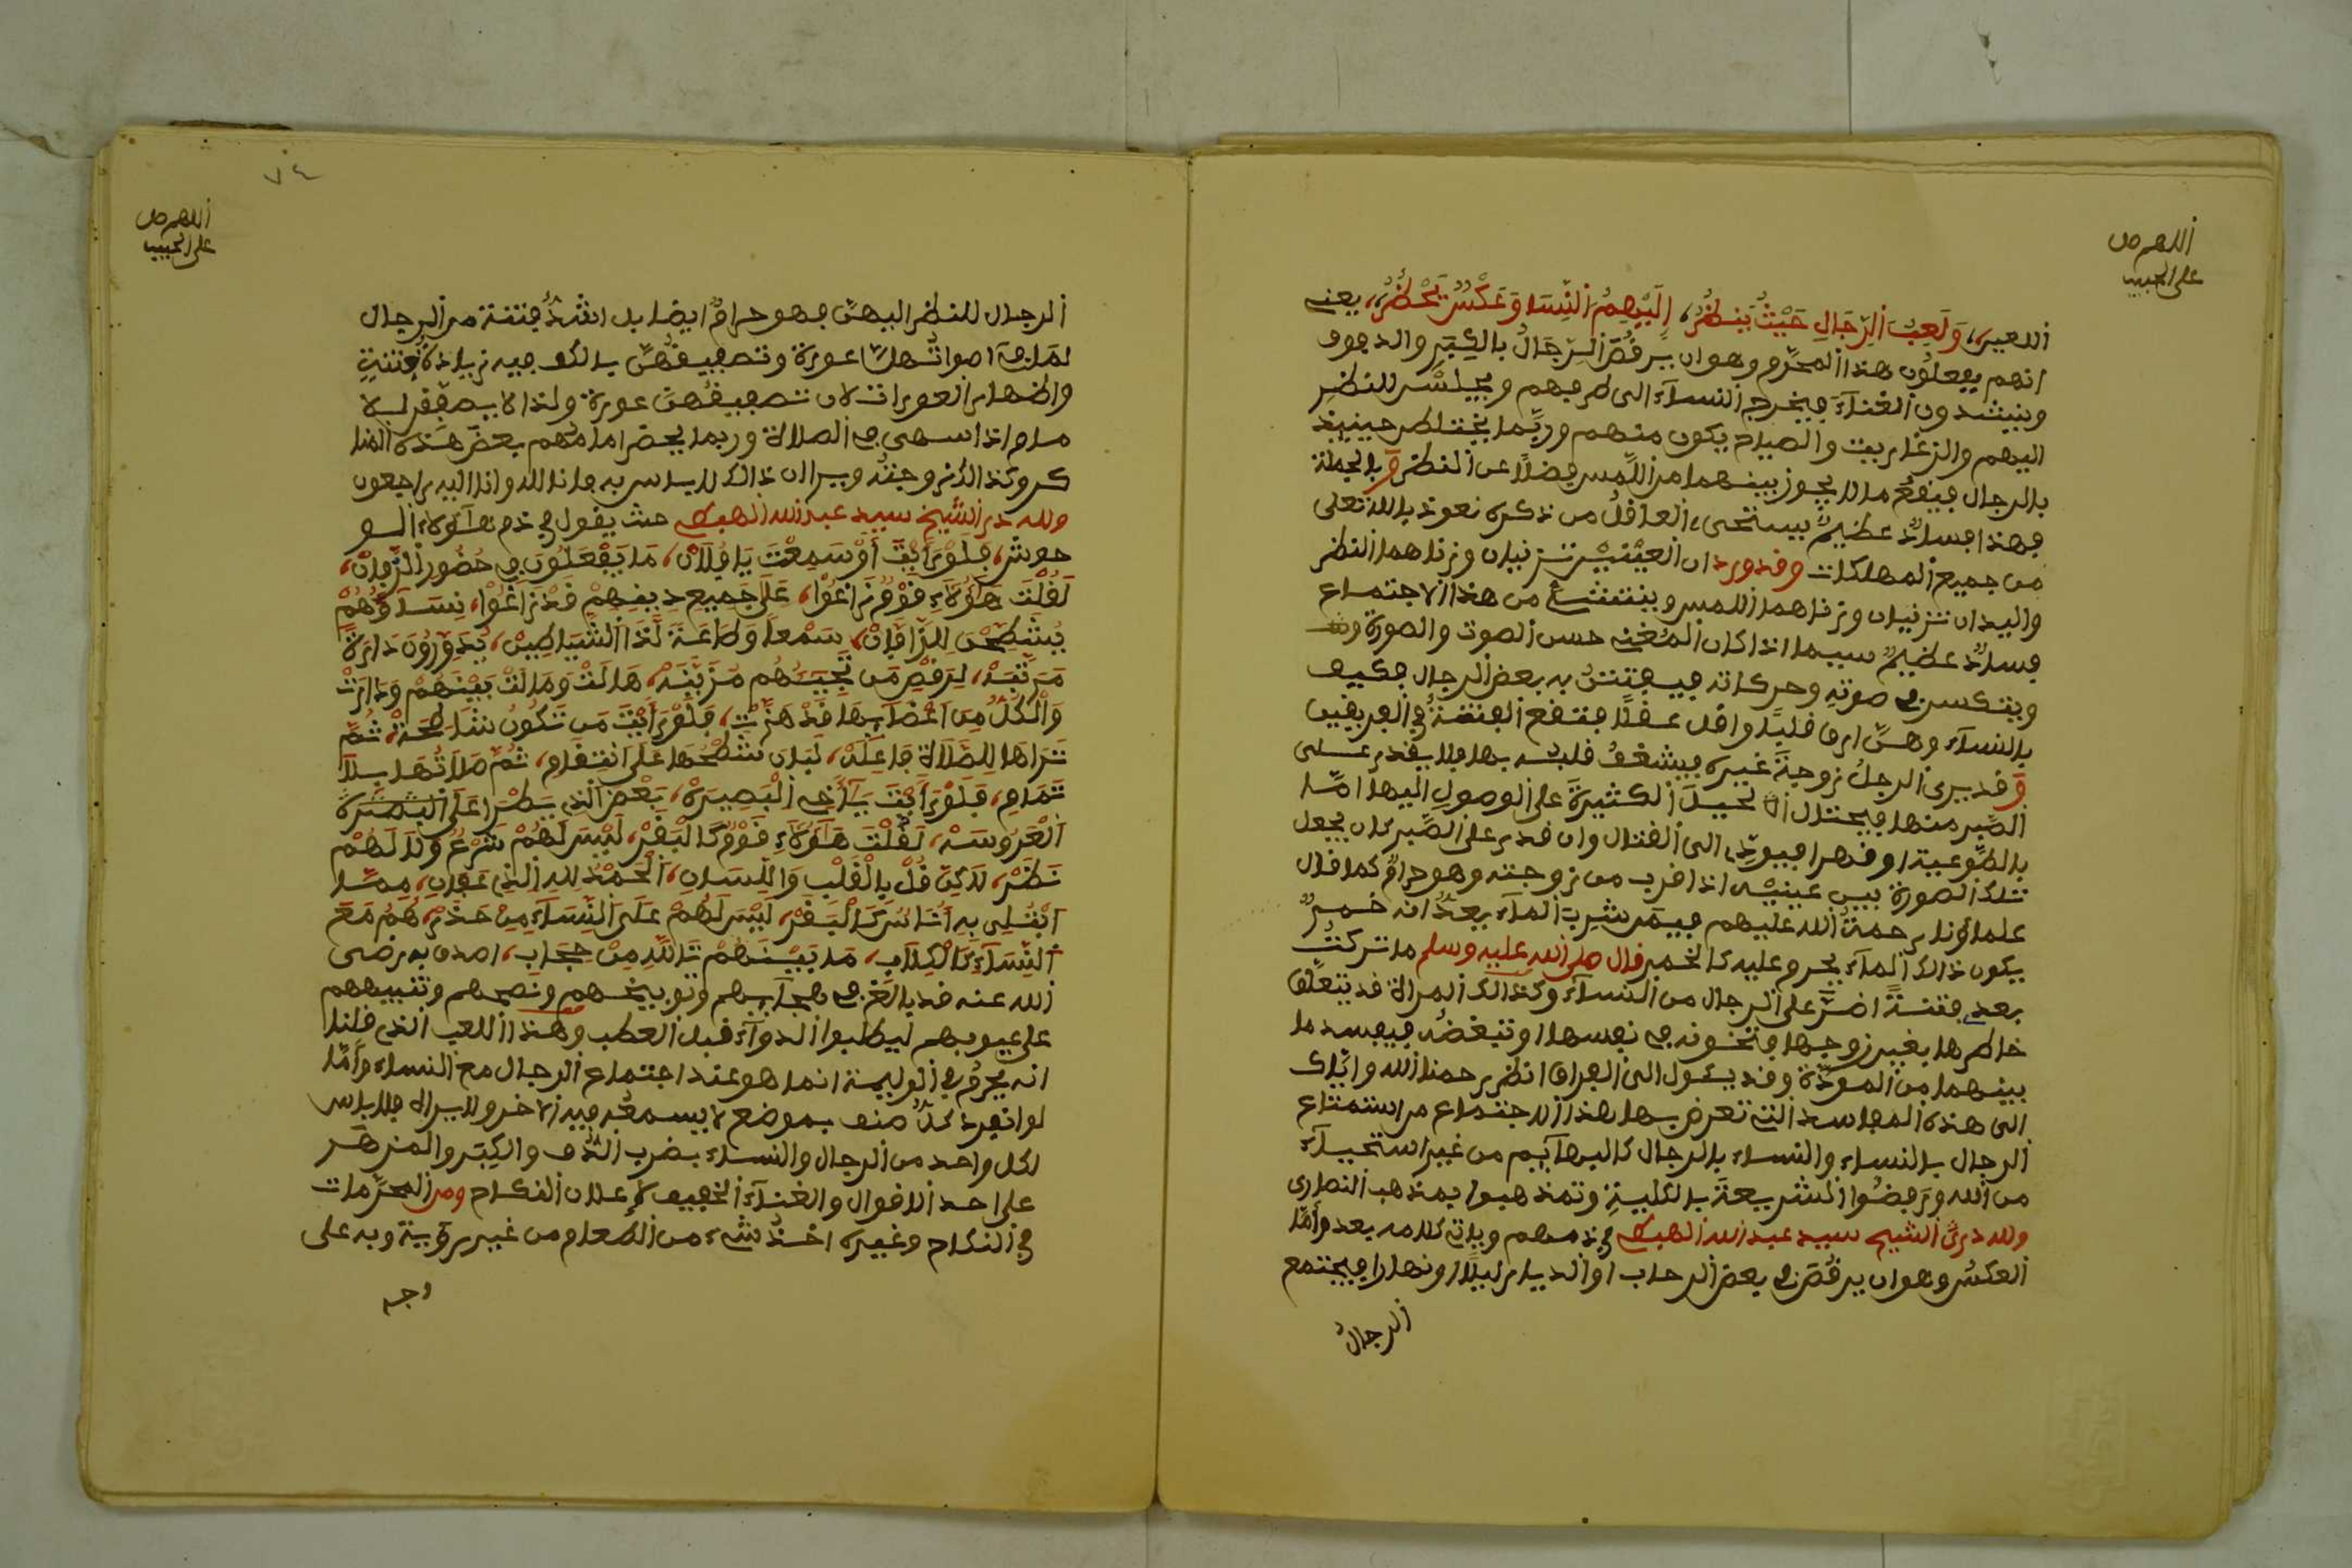 اللهم صل
على الحبيب
اللعين، وَلَعِبُ الرِّجَالِ حَيْثُ يَنظُرُ، إِلَيْهِمُ النِّسَا وَعَكْسٌ يَحْضُرُ، يعنى
انهم يفعلون هذا المحرّم وهو ان يرقُصَ الرجالُ بالكِبَرِ والدفوف
وينشدون الغنآءَ فيخرج النسآء الى طرفهم ويجلسْن للنظر
اليهم والزغاريت والصياح يكون منهم وربّما يختلطن حينيذ
بالرجال فيقع ما لا يجوز بينهما من اللّمس فضلاً عن النظر وبالجملة
فهذا فسادٌ عظيمٌ يستحى العاقلُ من ذكره نعوذ بالله تعلى
من جميع المهلكات وقد ورد ان العيْنيْن تزنيان وزناهما النظر
واليدان تزنيان وزناهما اللمس وينتشأ من هذا الاجتماع
فسادٌ عظيمٌ سيما اذا كان المُغنى حسن الصوت والصورة
ويتكسر فى صوته وحركاته فيفتتنُ به بعض الرجال فكيف
بالنسآء وهنّ ارق قلبًا واقل عقلًا فتقع الفتنةُ فى الفريقين
وقد يرى الرجلُ زوجةَ غيره فيشغفُ قلبُه بها ولا يقدر على
الصّبر منها فيحتال الحيلَ الكثيرةَ على الوصولِ اليها امّا
بالطّوعية او قهرا فيودّى الى القتال وان قدر على الصّبر كان يجعل
تلك الصورة بين عينيْه اذا قرب من زوجته وهو حرامٌ كما قال
علماؤنا رحمةُ الله عليهم فيمَن شَرِبَ المآء يعدُّ انه خمرٌ
يكون ذالك المآء يحرم عليه كالخمر قال صلى الله عليه وسلم ما تركتُ
بعدى فتنةً اضرَّ على الرجال من النسآء وكذالك المراة قد يتعلّق
خاطرها بغير زوجها فتخونه فى نفسها او تبغضُه فيفسد ما
بينهما من المودّة وقد يئول الى الفراق انظر رحمنا الله وايّاك
الى هذه المفاسد التى تعرض بها هذا الاجتماع من استمتاع
الرجال بالنساء والنساء بالرجال كالبهآيم من غير استحيآء
من الله ورفضُوا الشريعةَ بالكليةِ وتمذهبوا بمذهب النصارى
ولله درّ الشيخ سيدى عبد الله الهبطى فى ذمهم وياتى كلامه بعد وأمّا
العكسُ وهو ان يرقُصَن فى بعض الرحاب او الديار ليلًا او نهارا فيجتمع
الرجالُ
٧٤
اللهم صل
على الحبيب
الرجال للنظر اليهنّ فهو حرامٌ ايضا بل اشدُّ فتنة من الرجال
لمّا فى اصواتهنّ عورة وتصفيقُهنّ بالكف فيه زيادةُ فتنةٍ
واظهار العورات لان تصفيقُهنّ عورة ولذا لا يصفقن لـلا
مام اذا سهى فى الصلاة وربما يحضر امامُهم بعضَ هذه المنا
كر وكذالك زوجتُه ويرا ان ذالك لا باس به فانا لله وانا اليه راجعون
ولله در الشيخ سيدى عبد الله الهبطى حيث يقول فى ذم هآؤلاء الـو
حوش، فَلَوْ رَأَيْتَ أَوْ سَمِعْتَ يَا فُلَانْ، مَا يَفْعَلُونَ فِى حُضُورِ الزَّفَانْ،
لَقُلْتَ هَؤُلَاءِ قَوْمٌ زَاغُوا، عَلَى جَمِيعِ دِينِهِمْ قَدْ زَاغُوا، نِسَآؤُهُمْ
يُشْطِحْنَ لِلزَّافَانْ، سَمْعاً وَطَاعَةً لَذَا الشَّيَاطِينْ، يُدَوِّرُونَ دَارَةً
مُرَتَّبَهْ، لِرَقْصِ مَن تُجِيبُهُم مُزَيَّنَهْ، هَالَتْ وَمَالَتْ بَيْنَهُمْ وَدَارَتْ
وَالْكُلُّ مِن اعْضَآئِهَا قَدْ هَزَّتْ، فَلَوْ رَأَيْتَ مَن تَكُونُ شَاطِحَهْ، ثُمَّ
تَرَاهَا لِلصَّلَاةِ فَاعِلَهْ، لَبَانَ شَطْحُهَا عَلَى انتِقَامِ، ثُمَّ صَلَاتُهَا بِلَا
تَمَامِ، فَلَوْ رَأَيْتَ يَا أَخِى الْبَصِيرَهْ، بَعْضَ الذِى يَطْرَا عَلَى الْبَصِيرَهْ
الْعَرُوسَهْ، لَقُلْتَ هَؤُلَاءِ قَوْمٌ كَالْبَقَرْ، لَيْسَ لَهُمْ شَرْعٌ وَلَا لَهُمْ
نَظَرْ، لَاكِنْ قُلْ بِالْقَلْبِ وَاللِّسَانِ، الْحَمْدُ لِلهِ الذِى عَفَانِى، مِمَّا
ابْتُلِى بِهِ أُنَاسٌ كَالْبَقَرْ، لَيْسَ لَهُمْ عَلَى النِّسَآءِ مِنْ حَذَرْ، هُمُ مَعَ
النِّسَآءِ كَالْكِلَابِ، مَا بَيْنَهُمْ تَاللهِ مِنْ حِجَابِ، اصدق به رضى
الله عنه قد بالغ فى هجآئهم وتوبيخهم ونصحهم وتنبيههم
على عيوبهم ليطلبوا الدوآء قبل العطب وهذا اللعب الذى قلنا
انه يحرُم فى الوليمة انما هو عند اجتماع الرجال مع النساء وأمّا
لو انفرد كلٌّ منهـ بموضع لا يسمعُه فيه الاخر ولا يراه فلا باس
لكل واحد من الرجال والنساء بضرب الدُّف والكِبَر والمزهَر
على احد الاقوال والغنآء الخفيف لإعلان النكاح ومن المحرّمات
فى النكاح وغيره اخذُ شىء من الطعام من غير رؤية وبه على
وجـه